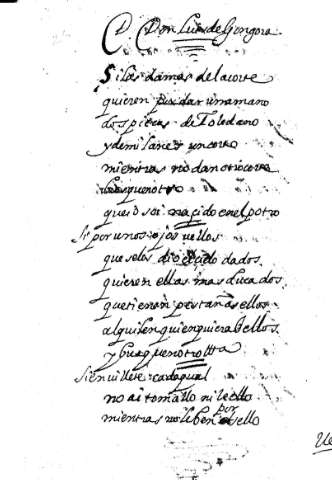 Don Luis de Gongora
Si las damas de la corte
quieren por dar una mano
dos piecas de Toledano
y de milanes un corte
mientras no dan otro corte
busquen otro
que io soi nacido en el potro
Si por unos ojos vellos
que se los dio el cielo dados
quieren ellas mas ducados
que tienen pestanas ellos
alquilen quien quiera bellos
y busquen otro
Si en villete cada qual
no ai tomallo ni leello
mientras no le ven por sello